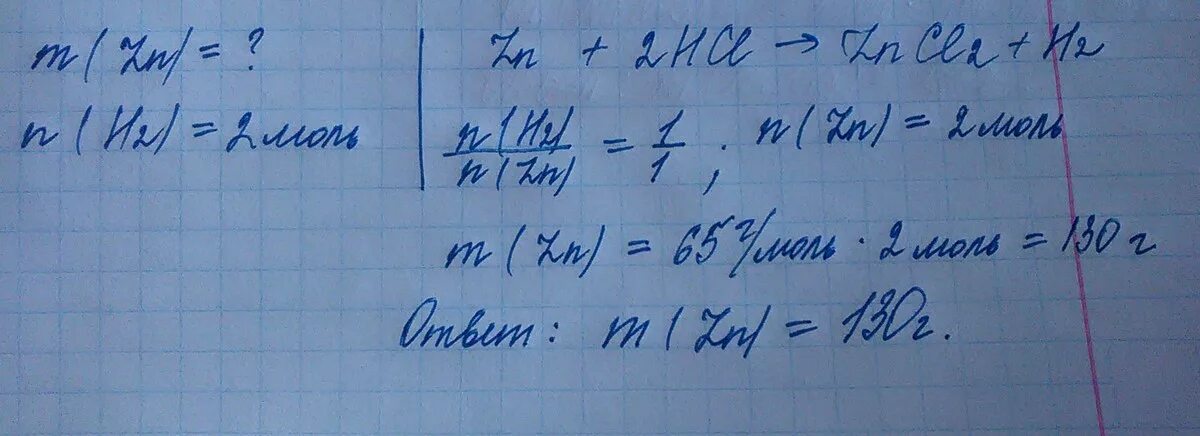 m(Zn) = ?
n(H2) = 2 моль
Zn + 2HCl → ZnCl2 + H2
n(H2)/n(Zn) = 1/1; n(Zn) = 2 моль
m(Zn) = 65 г/моль · 2 моль = 130 г
Ответ: m(Zn) = 130г.